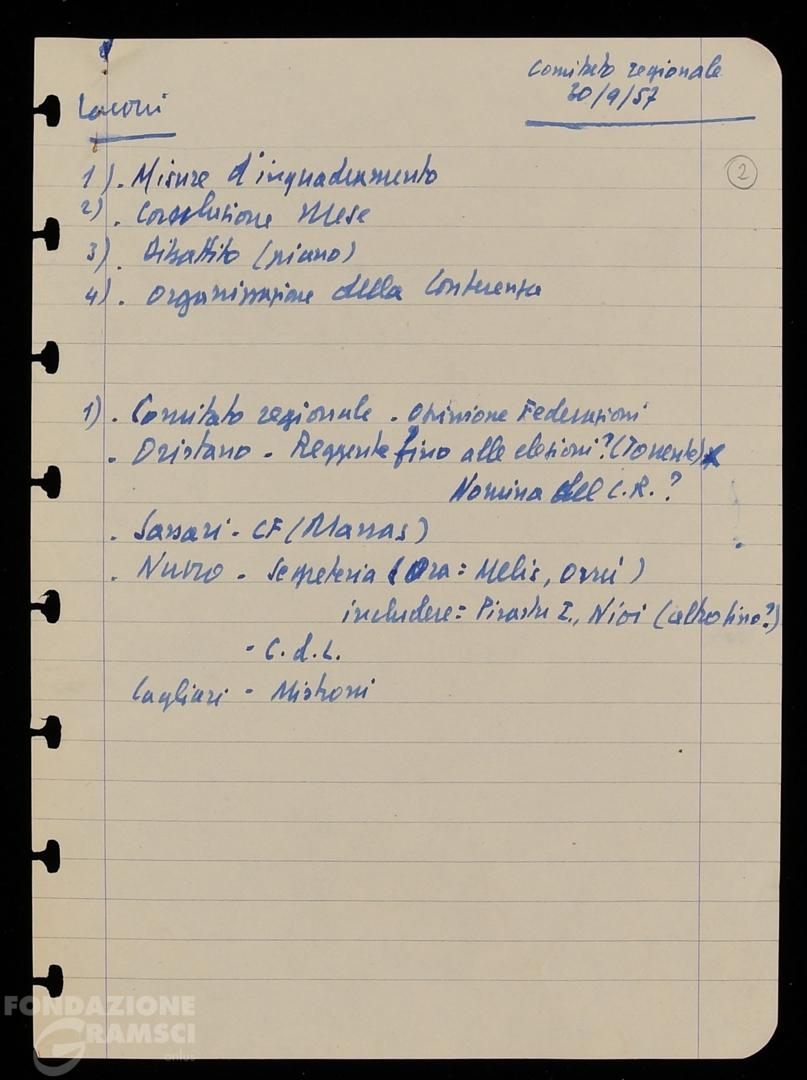 Comitato regionale
30/9/57
Laconi
2
1). Misure d'inquadramento
2). Conclusione Mese
3). Dibattito (piano)
4). Organizzazione della Conferenza
1). Comitato regionale - Opinione Federazioni
. Oristano - Reggente fino alle elezioni? (Torrente)x
Nomina del C.R.?
. Sassari - CF (Marras)
. Nuoro - Segreteria (Ora = Melis, Orrù)
includere = Pirastu I., Nioi (altro tino?)
- C.d.L.
Cagliari - Mistroni
FONDAZIONE
GRAMSCI
onlus